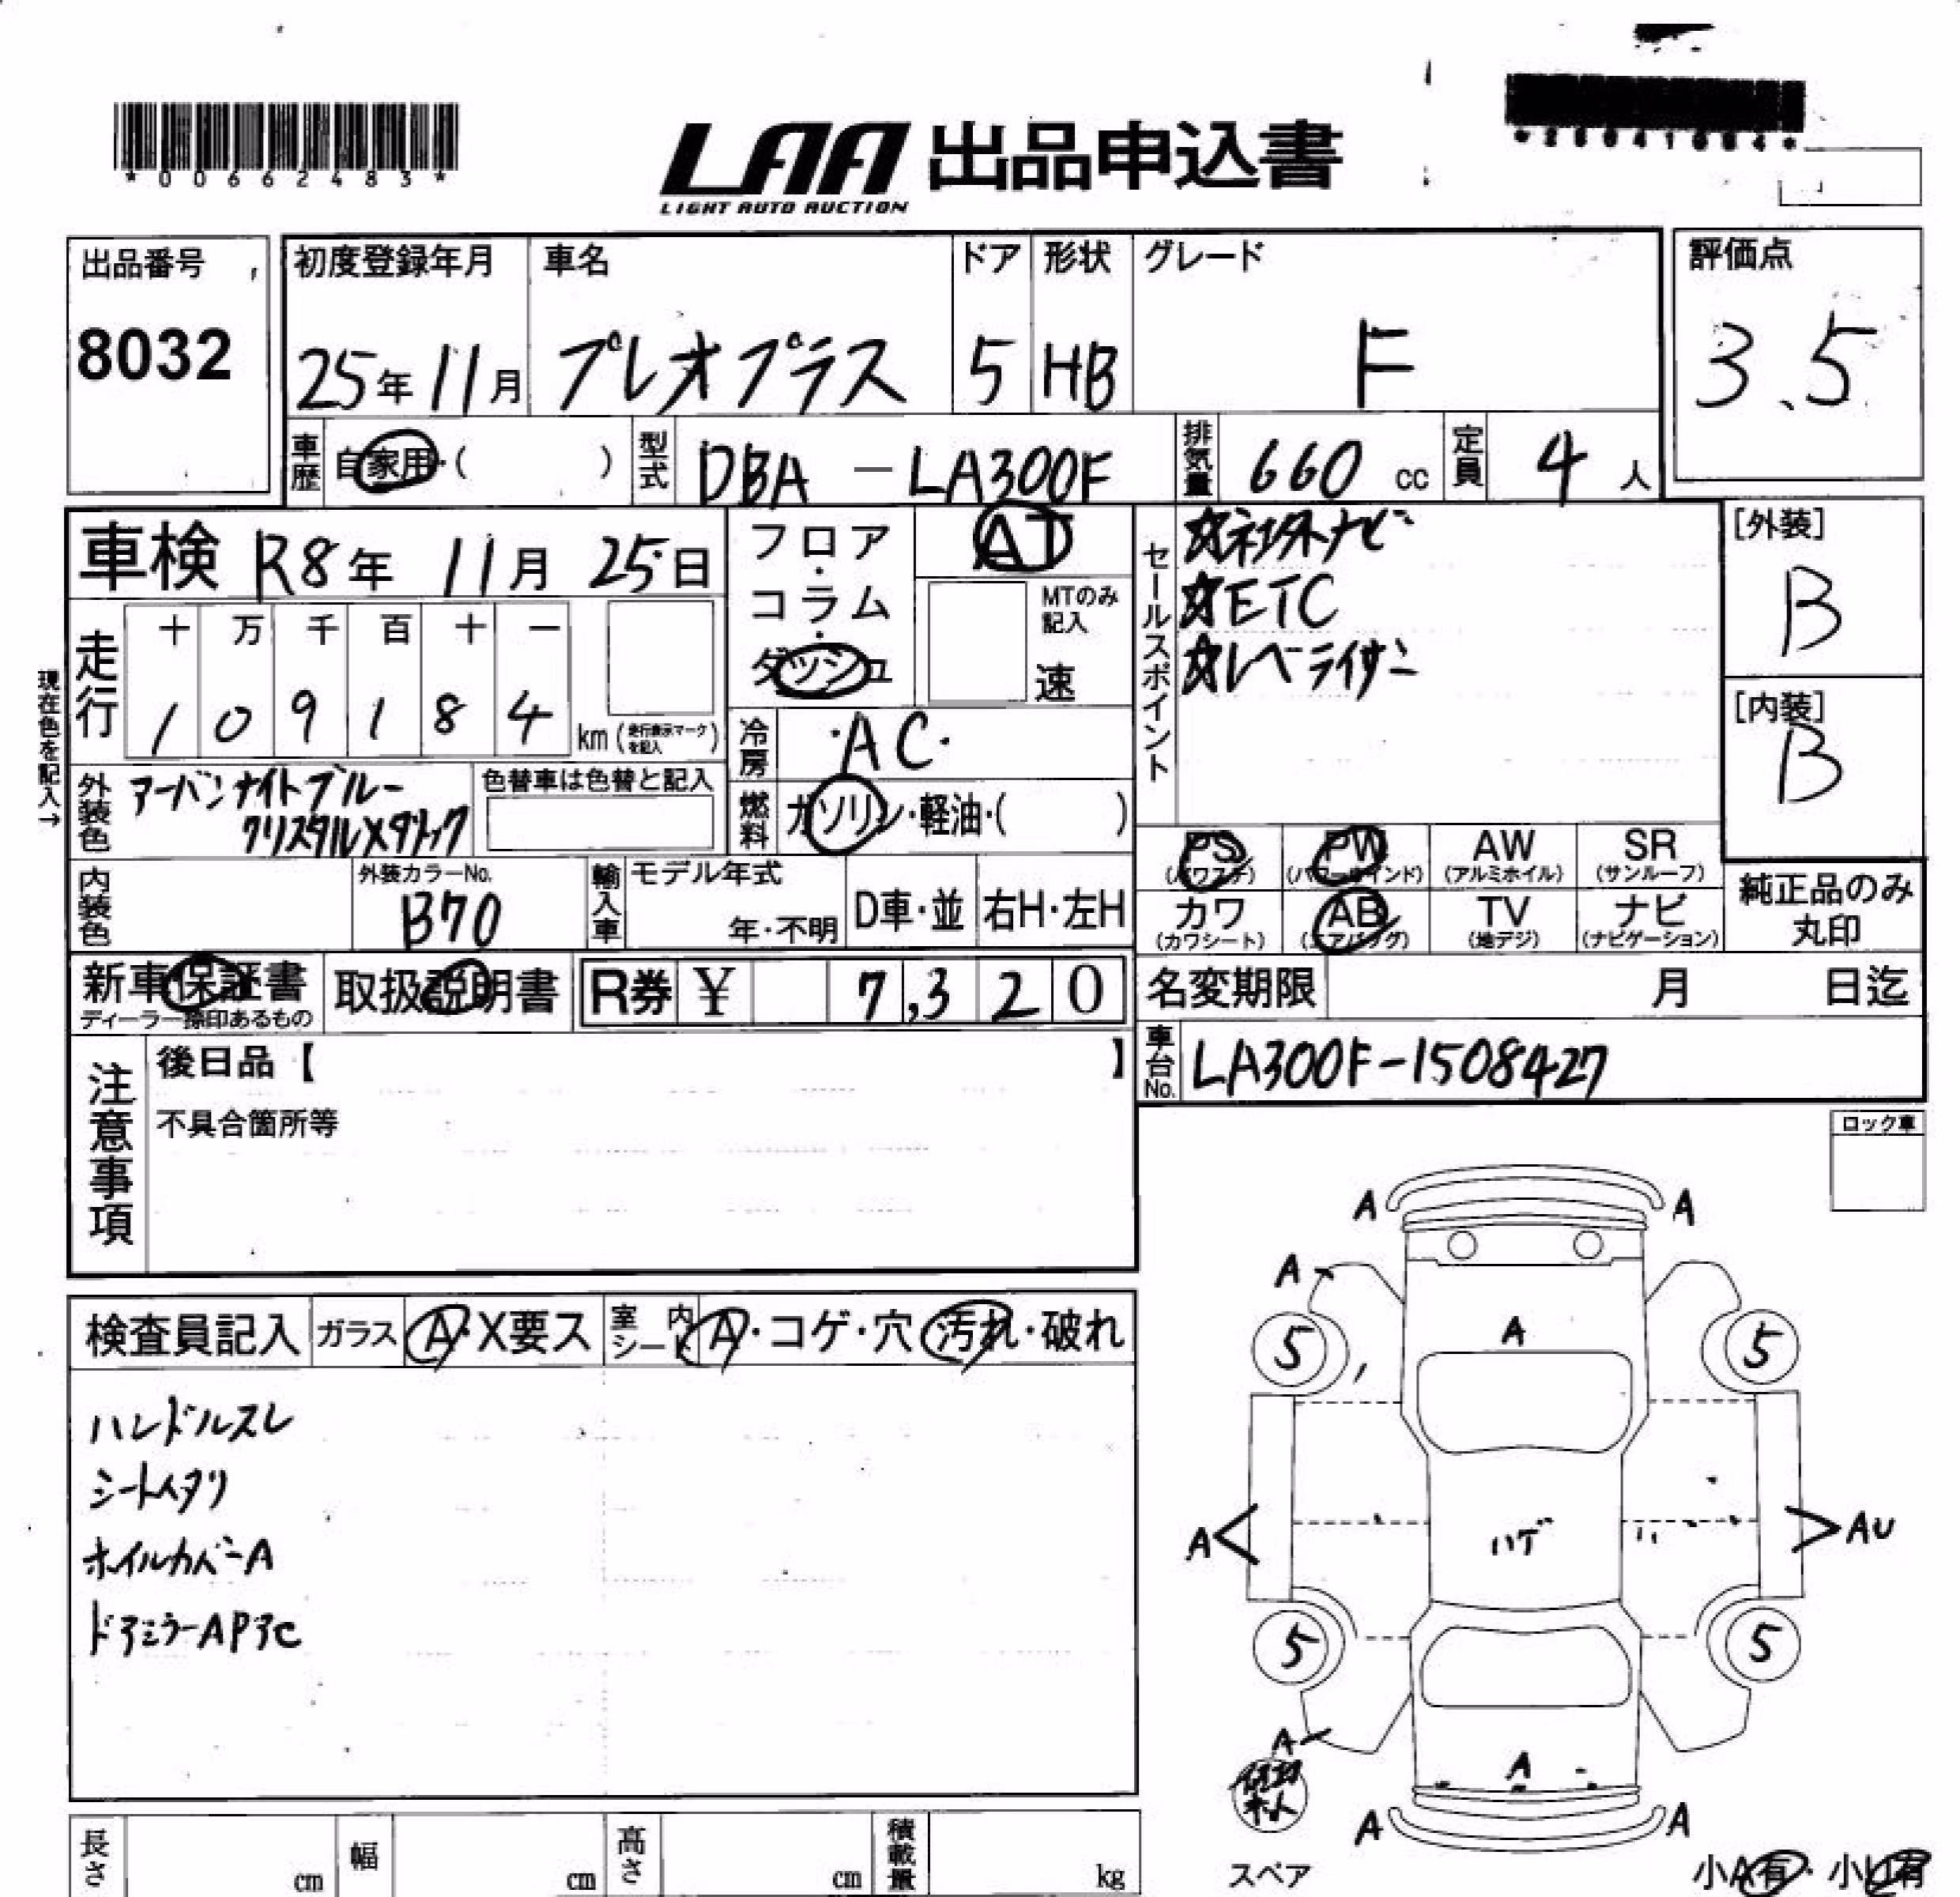 *00662483*
LAA 出品申込書
LIGHT AUTO AUCTION
出品番号
8032
初度登録年月
25年11月
車名
プレオプラス
ドア
5
形状
HB
グレード
F
評価点
3.5
車歴
自家用・( )
型式
DBA-LA300F
排気量
660 cc
定員
4人
車検 R8年 11月 25日
フロア・コラム・ダッシュ
AT
MTのみ記入
速
セールスポイント
☆社外ナビ
☆ETC
☆レベライザー
[外装]
B
[内装]
B
現在色を記入→
走行
十 万 千 百 十 一
1 0 9 1 8 4
km(走行表示マークを記入)
冷房
・AC・
外装色
アーバンナイトブルー
クリスタルメタリック
色替車は色替と記入
燃料
ガソリン・軽油・( )
PS
(パワステ)
PW
(パワーウインド)
AW
(アルミホイル)
SR
(サンルーフ)
カワ
(カワシート)
AB
(エアバッグ)
TV
(地デジ)
ナビ
(ナビゲーション)
純正品のみ
丸印
内装色
外装カラーNo.
B70
輸入車
モデル年式
年・不明
D車・並
右H・左H
新車保証書
ディーラー捺印あるもの
取扱説明書
R券 ¥ 7,320
名変期限 月 日迄
車台No.
LA300F-1508427
注意事項
後日品【 】
不具合箇所等
ロック車
検査員記入
ガラス
A・X要ス
室内
シート
A・コゲ・穴・汚れ・破れ
ハンドルスレ
シートヘタリ
ホイルカバーA
ドアミラーAPアC
A A
A
A
5 5
A< ハゲ >AU
5 5
A
A
A A
スペア
小A有・小U有
長さ cm
幅 cm
高さ cm
積載量 kg